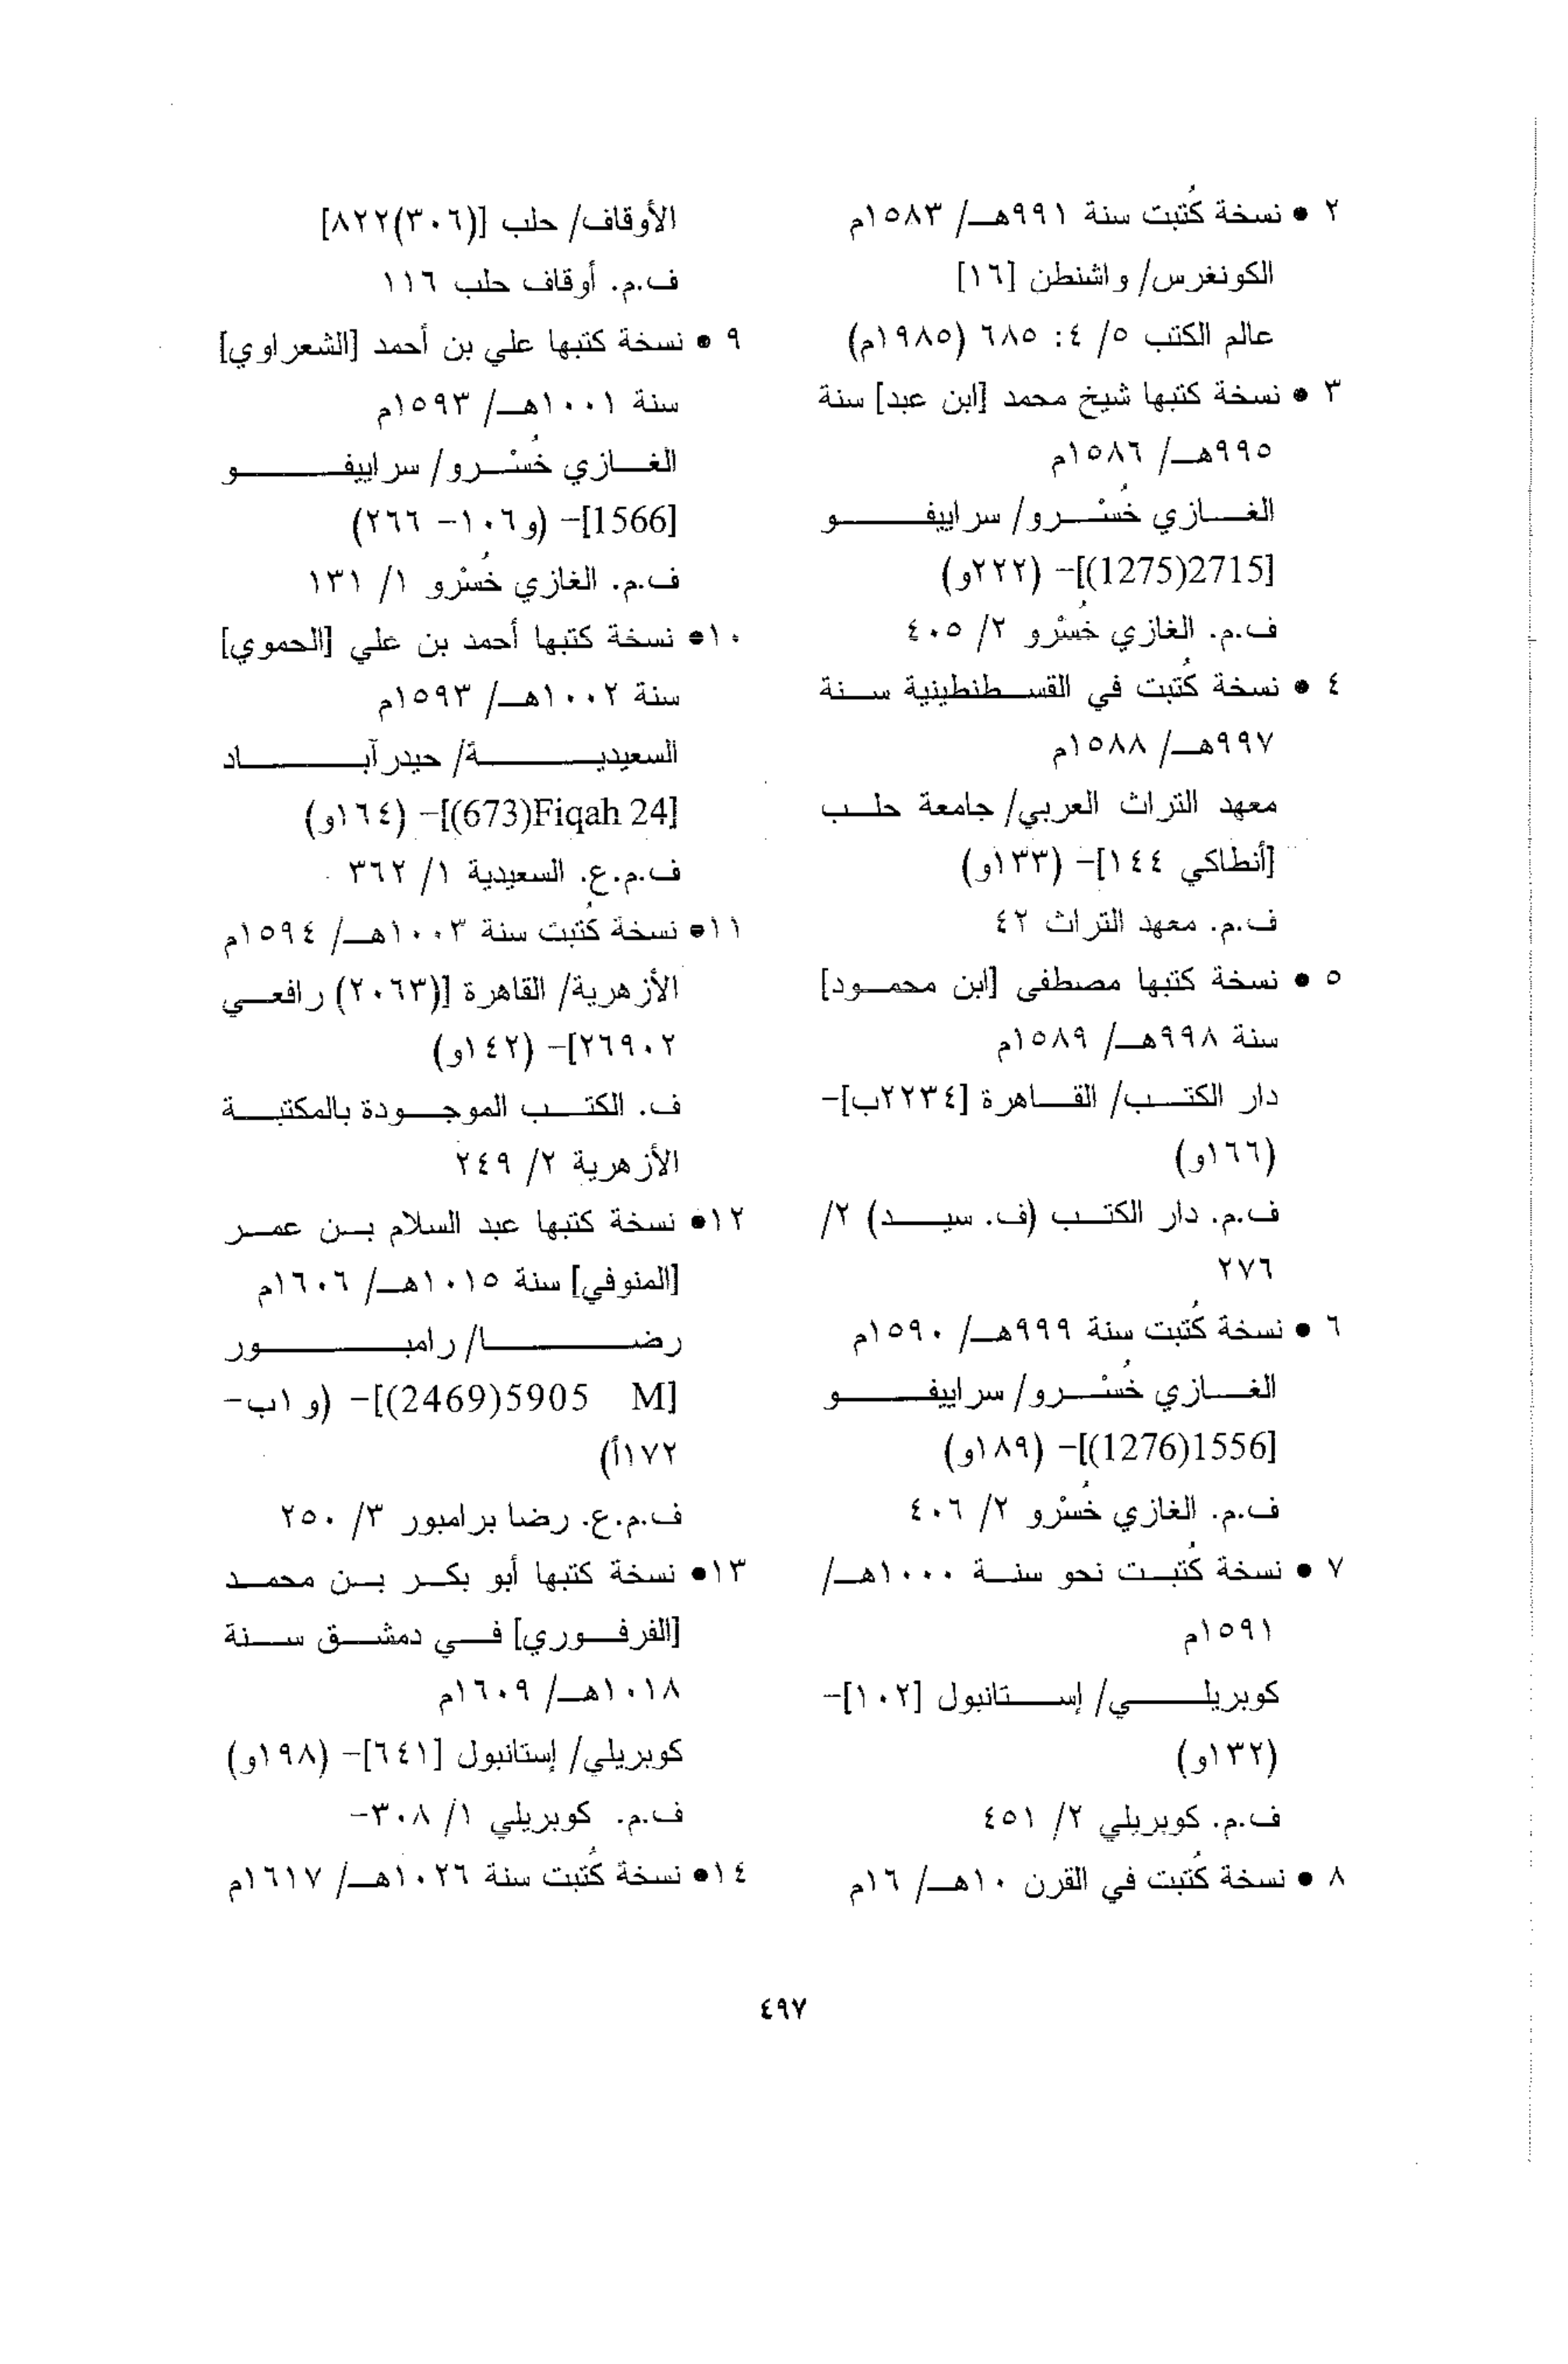 ٢ • نسخة كُتبت سنة ٩٩١هـ/ ١٥٨٣م
الكونغرس/ واشنطن [١٦]
عالم الكتب ٥/ ٤: ٦٨٥ (١٩٨٥م)
٣ • نسخة كتبها شيخ محمد [ابن عبد] سنة
٩٩٥هـ/ ١٥٨٦م
الغازي خُسْرو/ سراييفو
[2715(1275)]- (٢٢٢و)
ف.م. الغازي خُسْرو ٢/ ٤٠٥
٤ • نسخة كُتبت في القسطنطينية سنة
٩٩٧هـ/ ١٥٨٨م
معهد التراث العربي/ جامعة حلب
[أنطاكي ١٤٤]- (١٣٣و)
ف.م. معهد التراث ٤٢
٥ • نسخة كتبها مصطفى [ابن محمود]
سنة ٩٩٨هـ/ ١٥٨٩م
دار الكتب/ القاهرة [٢٢٣٤ب]-
(١٦٦و)
ف.م. دار الكتب (ف. سيد) ٢/
٢٧٦
٦ • نسخة كُتبت سنة ٩٩٩هـ/ ١٥٩٠م
الغازي خُسْرو/ سراييفو
[1556(1276)]- (١٨٩و)
ف.م. الغازي خُسْرو ٢/ ٤٠٦
٧ • نسخة كُتبت نحو سنة ١٠٠٠هـ/
١٥٩١م
كوبريلي/ إستانبول [١٠٢]-
(١٣٢و)
ف.م. كوبريلي ٢/ ٤٥١
٨ • نسخة كُتبت في القرن ١٠هـ/ ١٦م
الأوقاف/ حلب [(٣٠٦)٨٢٢]
ف.م. أوقاف حلب ١١٦
٩ • نسخة كتبها علي بن أحمد [الشعراوي]
سنة ١٠٠١هـ/ ١٥٩٣م
الغازي خُسْرو/ سراييفو
[1566]- (و١٠٦- ٢٦٦)
ف.م. الغازي خُسْرو ١/ ١٣١
١٠• نسخة كتبها أحمد بن علي [الحموي]
سنة ١٠٠٢هـ/ ١٥٩٣م
السعيدية/ حيدرآباد
[Fiqah 24(673)]- (١٦٤و)
ف.م.ع. السعيدية ١/ ٣٦٢
١١• نسخة كُتبت سنة ١٠٠٣هـ/ ١٥٩٤م
الأزهرية/ القاهرة [(٢٠٦٣) رافعي
٢٦٩٠٢]- (١٤٢و)
ف. الكتب الموجودة بالمكتبة
الأزهرية ٢/ ٢٤٩
١٢• نسخة كتبها عبد السلام بن عمر
[المنوفي] سنة ١٠١٥هـ/ ١٦٠٦م
رضا/ رامبور
[M 5905(2469)]- (و ١ب-
١٧٢أ)
ف.م.ع. رضا برامبور ٣/ ٢٥٠
١٣• نسخة كتبها أبو بكر بن محمد
[الفرفوري] في دمشق سنة
١٠١٨هـ/ ١٦٠٩م
كوبريلي/ إستانبول [٦٤١]- (١٩٨و)
ف.م. كوبريلي ١/ ٣٠٨-
١٤• نسخة كُتبت سنة ١٠٢٦هـ/ ١٦١٧م
٤٩٧